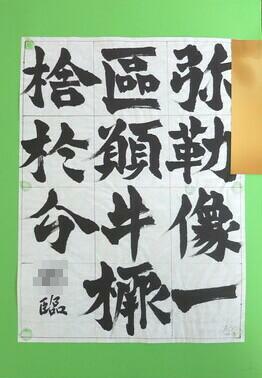 弥勒像一
區願牛橛
捨於分
臨